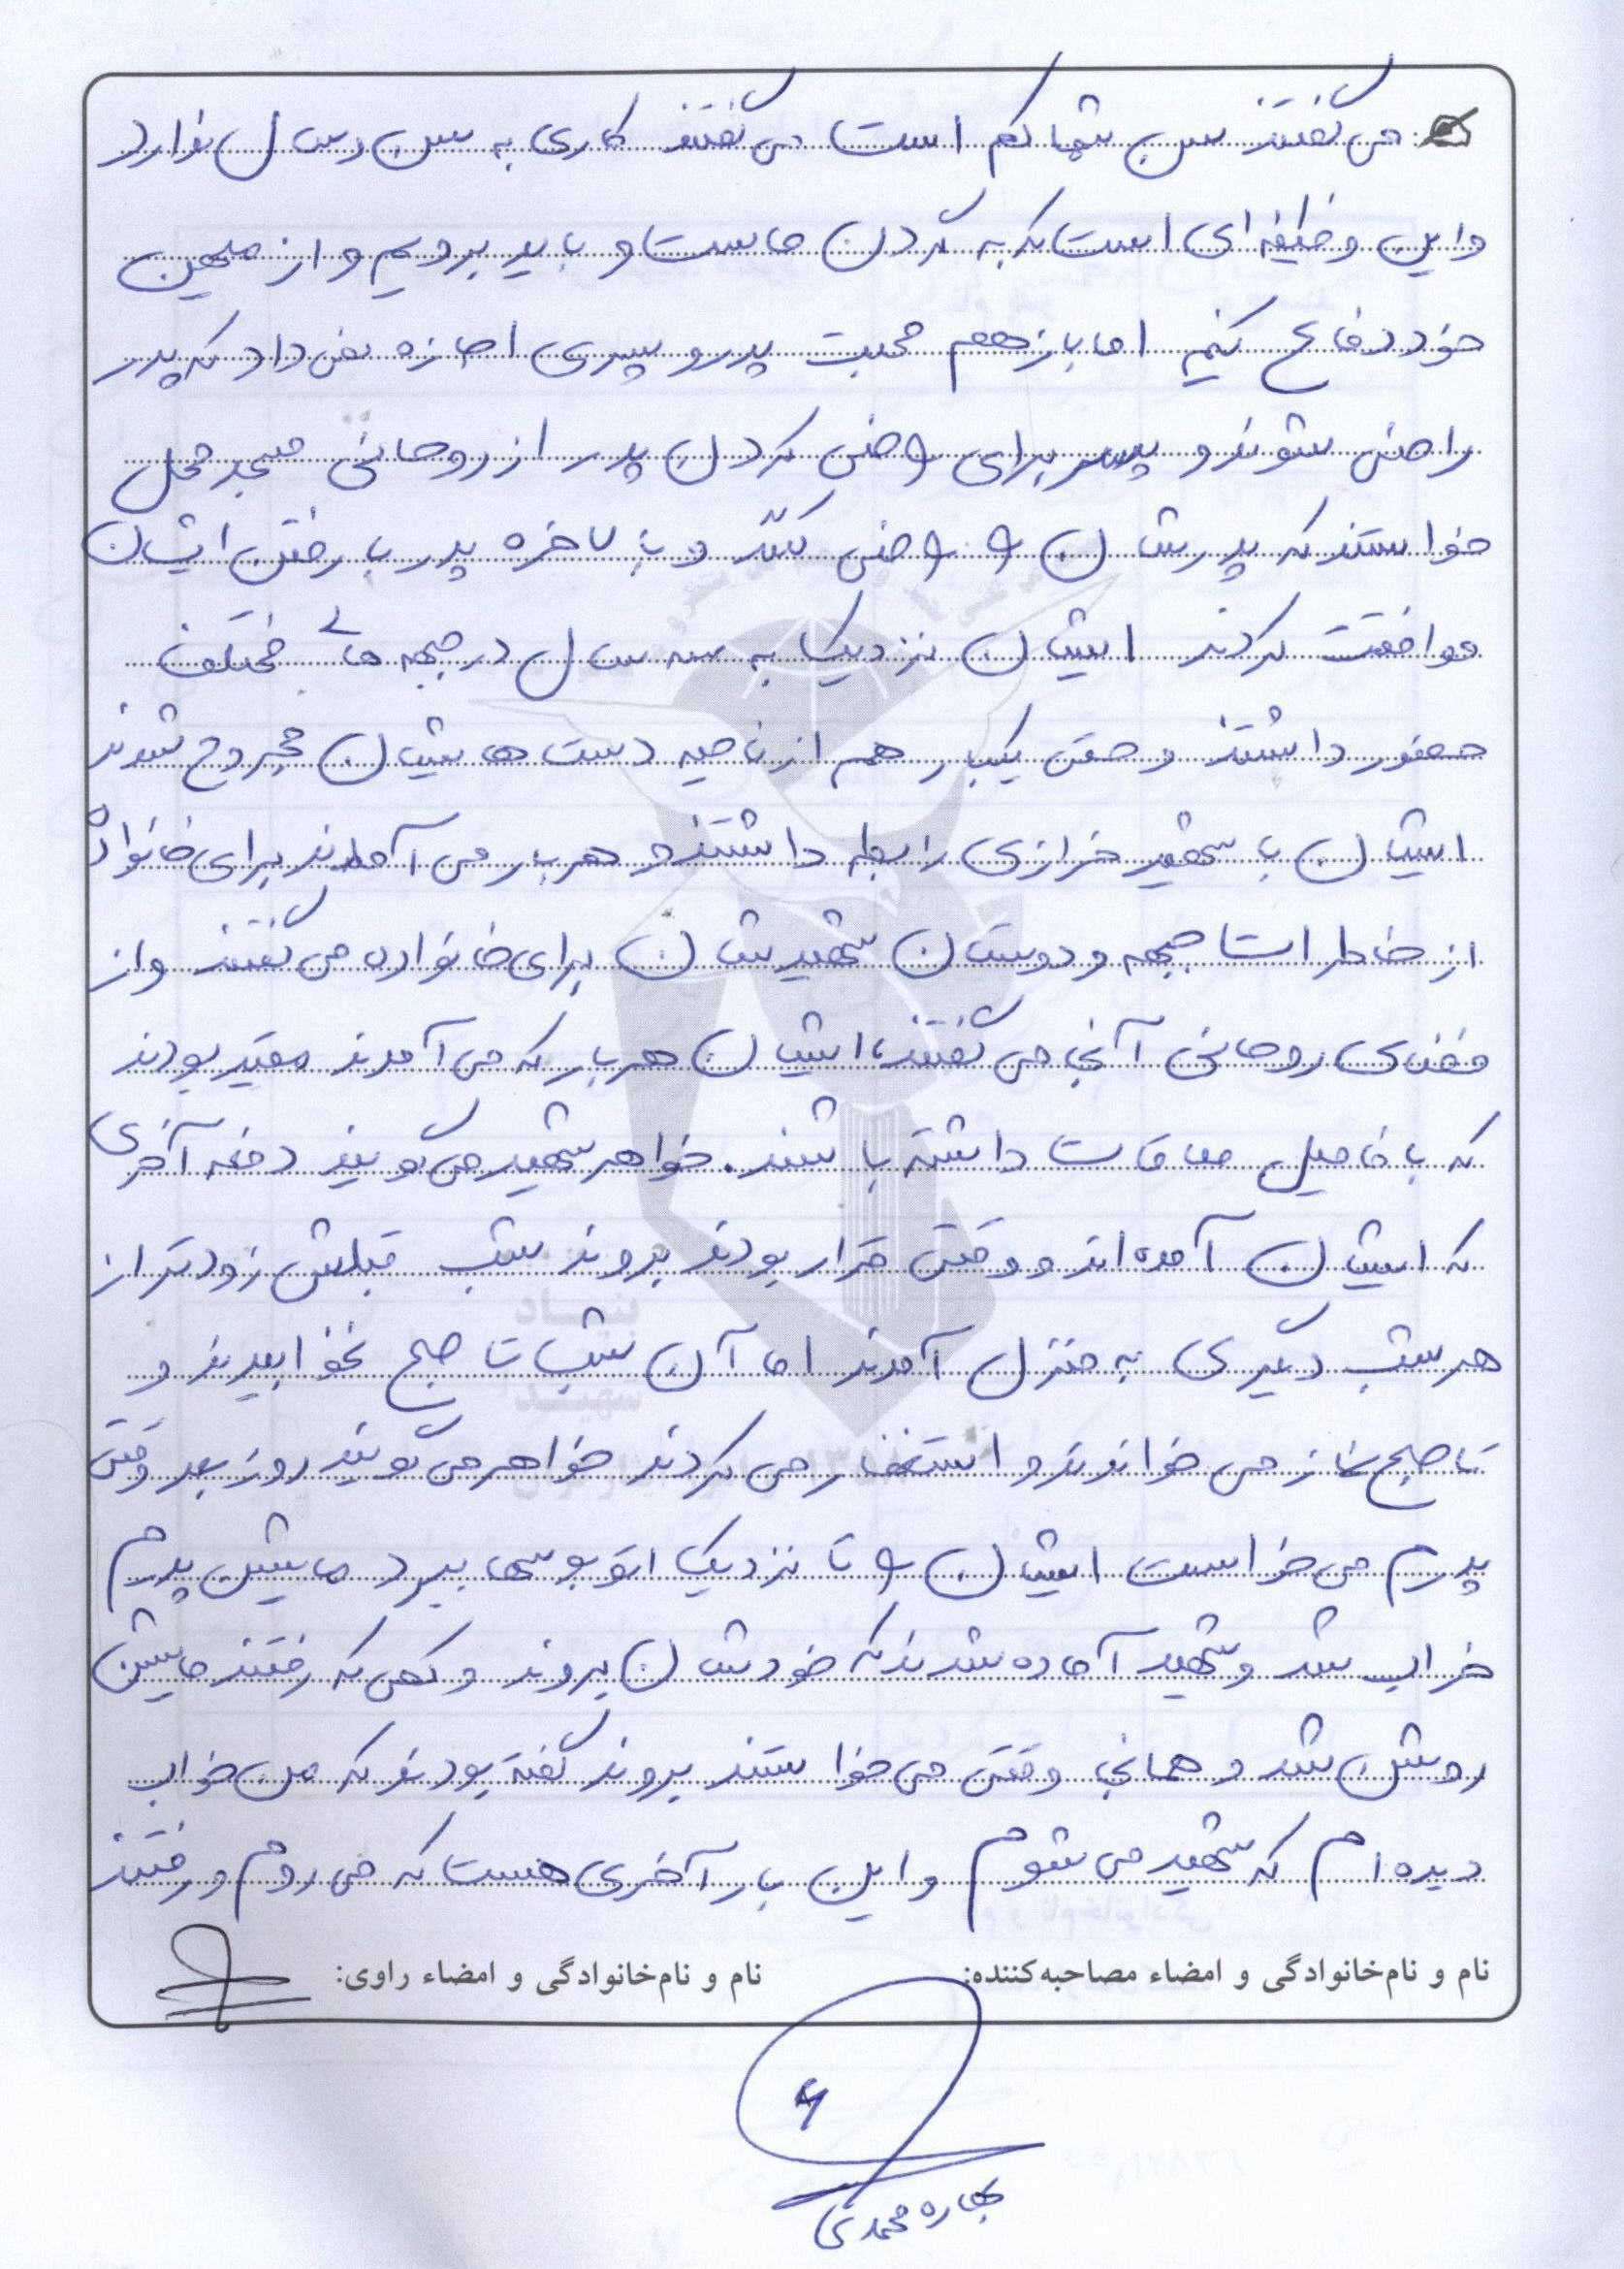 می گفتند سن شما کم است می گفتند کاری به سن و سال ندارد
و این وظیفه ای است که به گردن ماست و باید برویم و از میهن
خود دفاع کنیم اما باز هم محبت پدر و پسری اجازه نمی داد که پدر
راضی شوند و پسر برای راضی کردن پدر از روحانی مسجد محل
خواستند که پدرشان را راضی کنند و بالاخره پدر با رفتن ایشان
موافقت کردند ایشان نزدیک به سه سال در جبهه های مختلف
حضور داشتند و حتی یکبار هم از ناحیه دست هایشان مجروح شدند
ایشان با شهید خرازی رابطه داشتند و هر بار می آمدند برای خانواده
از خاطرات جبهه و دوستان شهیدشان برای خانواده می گفتند و از
فضای روحانی آنجا می گفتند، ایشان هر بار که می آمدند مقید بودند
که با فامیل ملاقات داشته باشند. خواهر شهید می گویند دفعه آخری
که ایشان آمده اند و وقتی قرار بودند بروند شب قبلش زودتر از
هر شب دیگری به منزل آمدند اما آن شب تا صبح نخوابیدند و
تا صبح نماز می خواندند و استغفار می کردند خواهر می گویند روز بعد وقتی
پدرم می خواست ایشان را تا نزدیک اتوبوسها ببرد ماشین پدرم
خراب شد و شهید آماده شدند که خودشان بروند و کمی که رفتند ماشین
روشن شد و همانجا وقتی می خواستند بروند گفته بودند که من خواب
دیده ام که شهید می شوم و این بار آخری هست که می روم و رفتند
نام و نام‌خانوادگی و امضاء مصاحبه‌کننده: نام و نام‌خانوادگی و امضاء راوی:
۶
بهاره محمدی